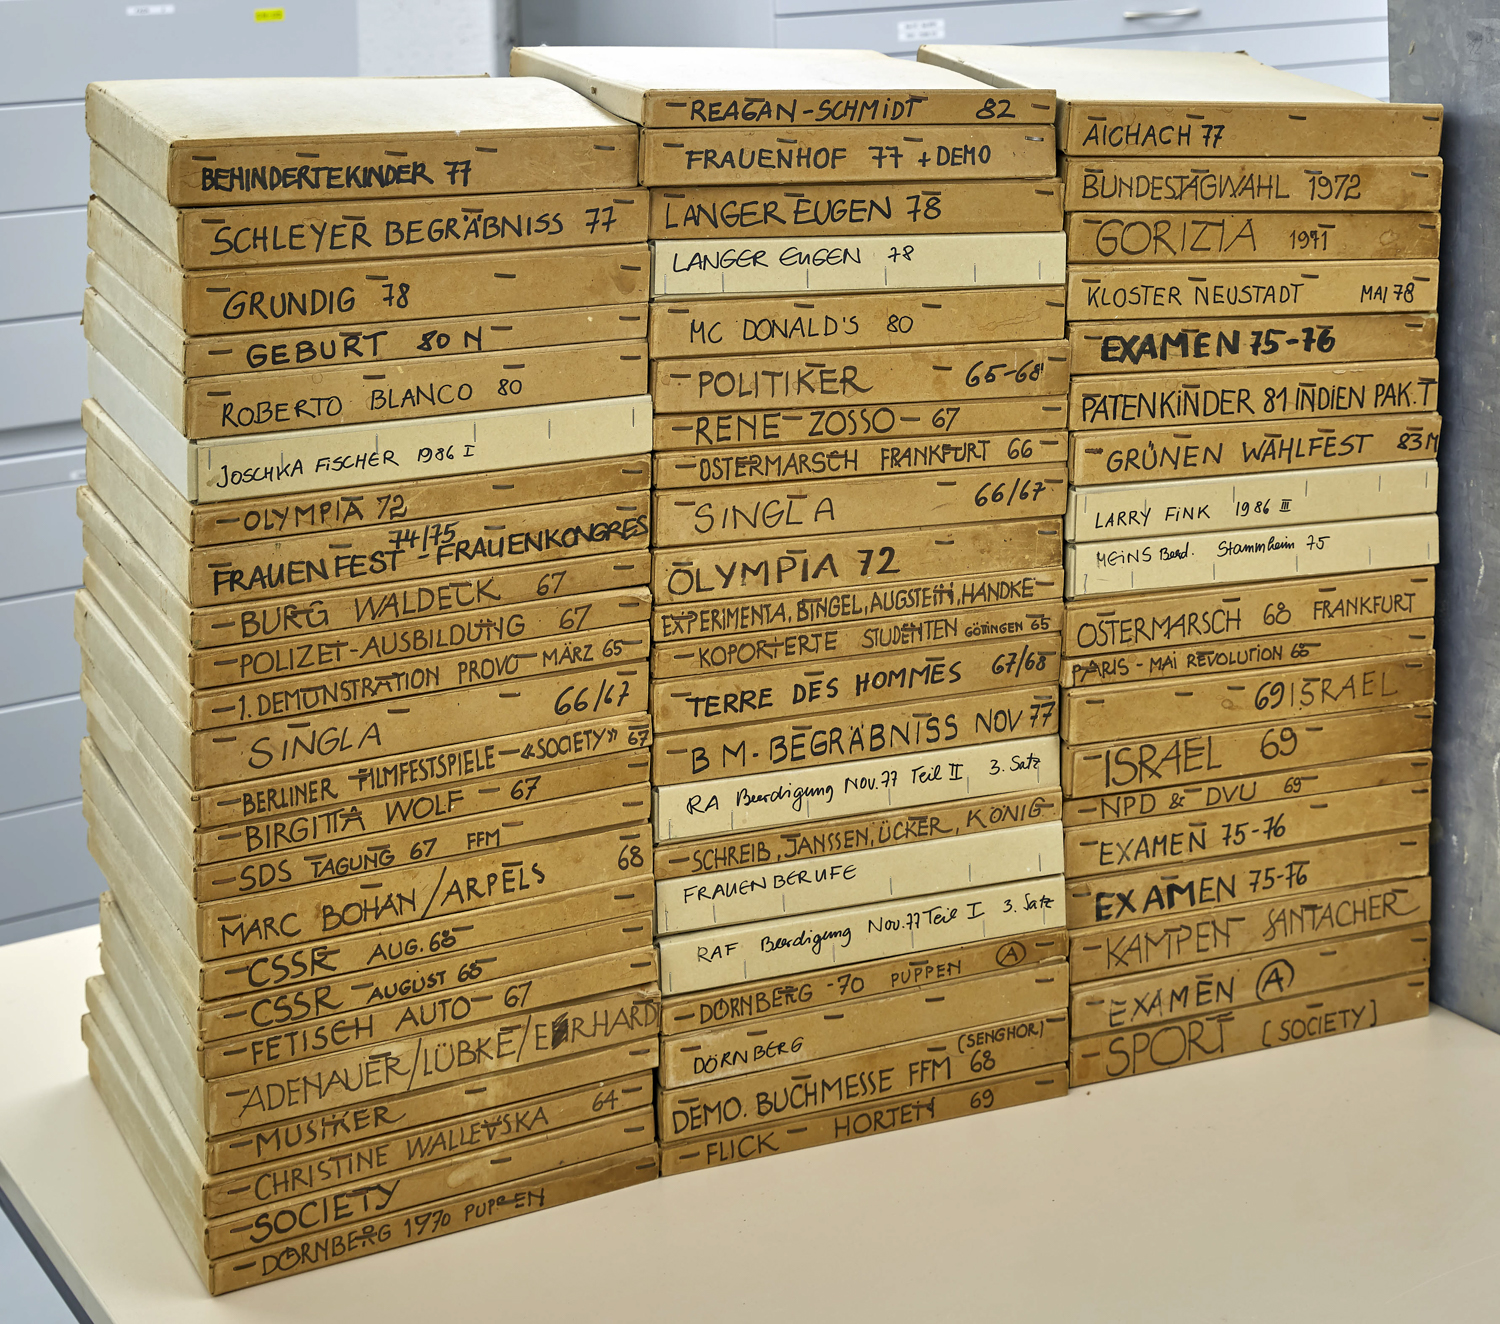 BEHINDERTEKINDER 77
SCHLEYER BEGRÄBNISS 77
GRUNDIG 78
GEBURT 80 N
ROBERTO BLANCO 80
JOSCHKA FISCHER 1986 I
OLYMPIA 72
74/75
FRAUENFEST - FRAUENKONGRES
BURG WALDECK 67
POLIZEI-AUSBILDUNG 67
1. DEMONSTRATION PROVO MÄRZ 65
SINGLA 66/67
BERLINER FILMFESTSPIELE - «SOCIETY» 67
BIRGITTA WOLF - 67
SDS TAGUNG 67 FFM
MARC BOHAN/ARPELS 68
CSSR AUG. 68
CSSR - AUGUST 68
FETISCH AUTO - 67
ADENAUER/LÜBKE/ERHARD
MUSIKER
CHRISTINE WALLEVSKA 64
SOCIETY
DÖRNBERG 1970 PUPPEN
REAGAN-SCHMIDT 82
FRAUENHOF 77 + DEMO
LANGER EUGEN 78
LANGER EUGEN 78
MC DONALD'S 80
POLITIKER 65-68
RENE ZOSSO - 67
OSTERMARSCH FRANKFURT 66
SINGLA 66/67
OLYMPIA 72
EXPERIMENTA, BINGEL, AUGSTEIN, HANDKE
KOPORIERTE STUDENTEN GÖTTINGEN 65
TERRE DES HOMMES 67/68
B M - BEGRÄBNISS NOV 77
RA Beerdigung Nov. 77 Teil II 3. Satz
SCHREIB, JANSSEN, ÜCKER, KÖNIG
FRAUENBERUFE
RAF Beerdigung Nov. 77 Teil I 3. Satz
DÖRNBERG - 70 PUPPEN (A)
DÖRNBERG
DEMO. BUCHMESSE FFM 68 (SENGHOR)
FLICK - HORTEN 69
AICHACH 77
BUNDESTAGWAHL 1972
GORIZIA 1971
KLOSTER NEUSTADT MAI 78
EXAMEN 75-76
PATENKINDER 81 INDIEN PAK.T
GRÜNEN WAHLFEST 83 M
LARRY FINK 1986 III
MEINS Beerd. Stammheim 75
OSTERMARSCH 68 FRANKFURT
PARIS - MAI REVOLUTION 68
69 ISRAEL
ISRAEL 69
NPD & DVU 69
EXAMEN 75-76
EXAMEN 75-76
KAMPEN SANTACHER
EXAMEN (A)
SPORT [SOCIETY]